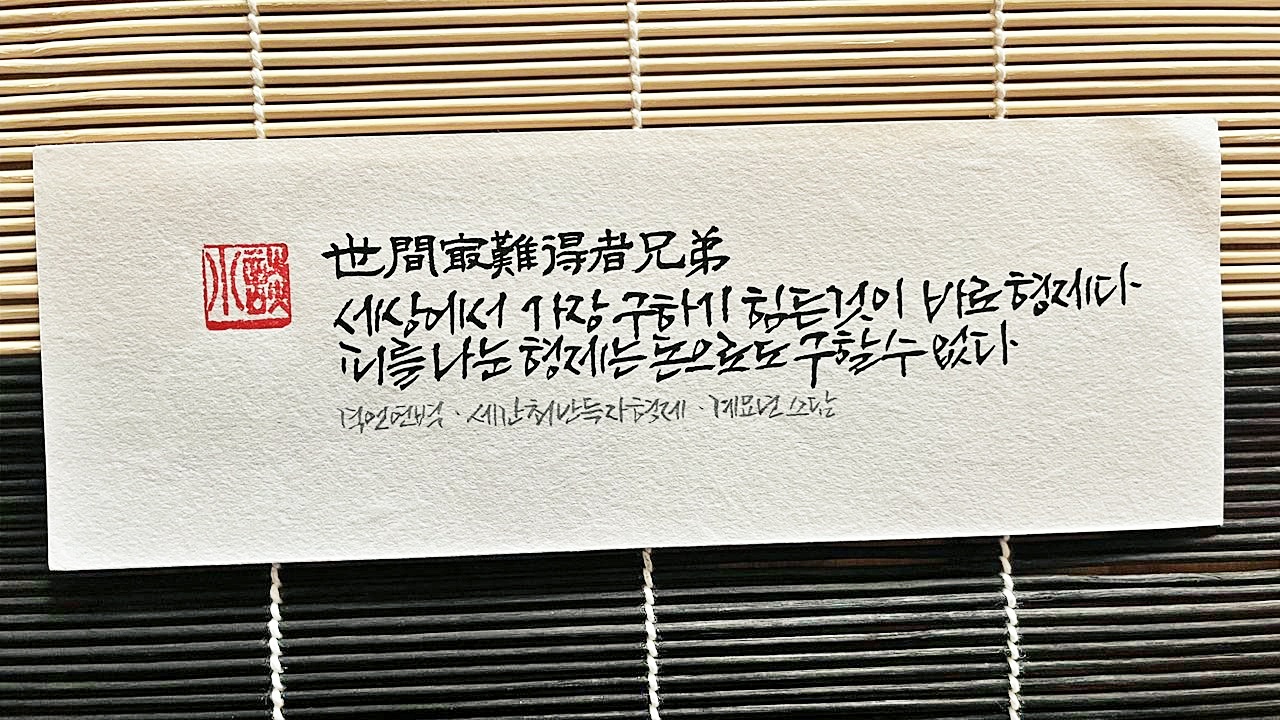 世間最難得者兄弟
세상에서 가장 구하기 힘든것이 바로 형제다
피를 나눈 형제는 돈으로도 구할 수 없다
격언연벽 · 세간최난득자형제 · 계묘년 스담